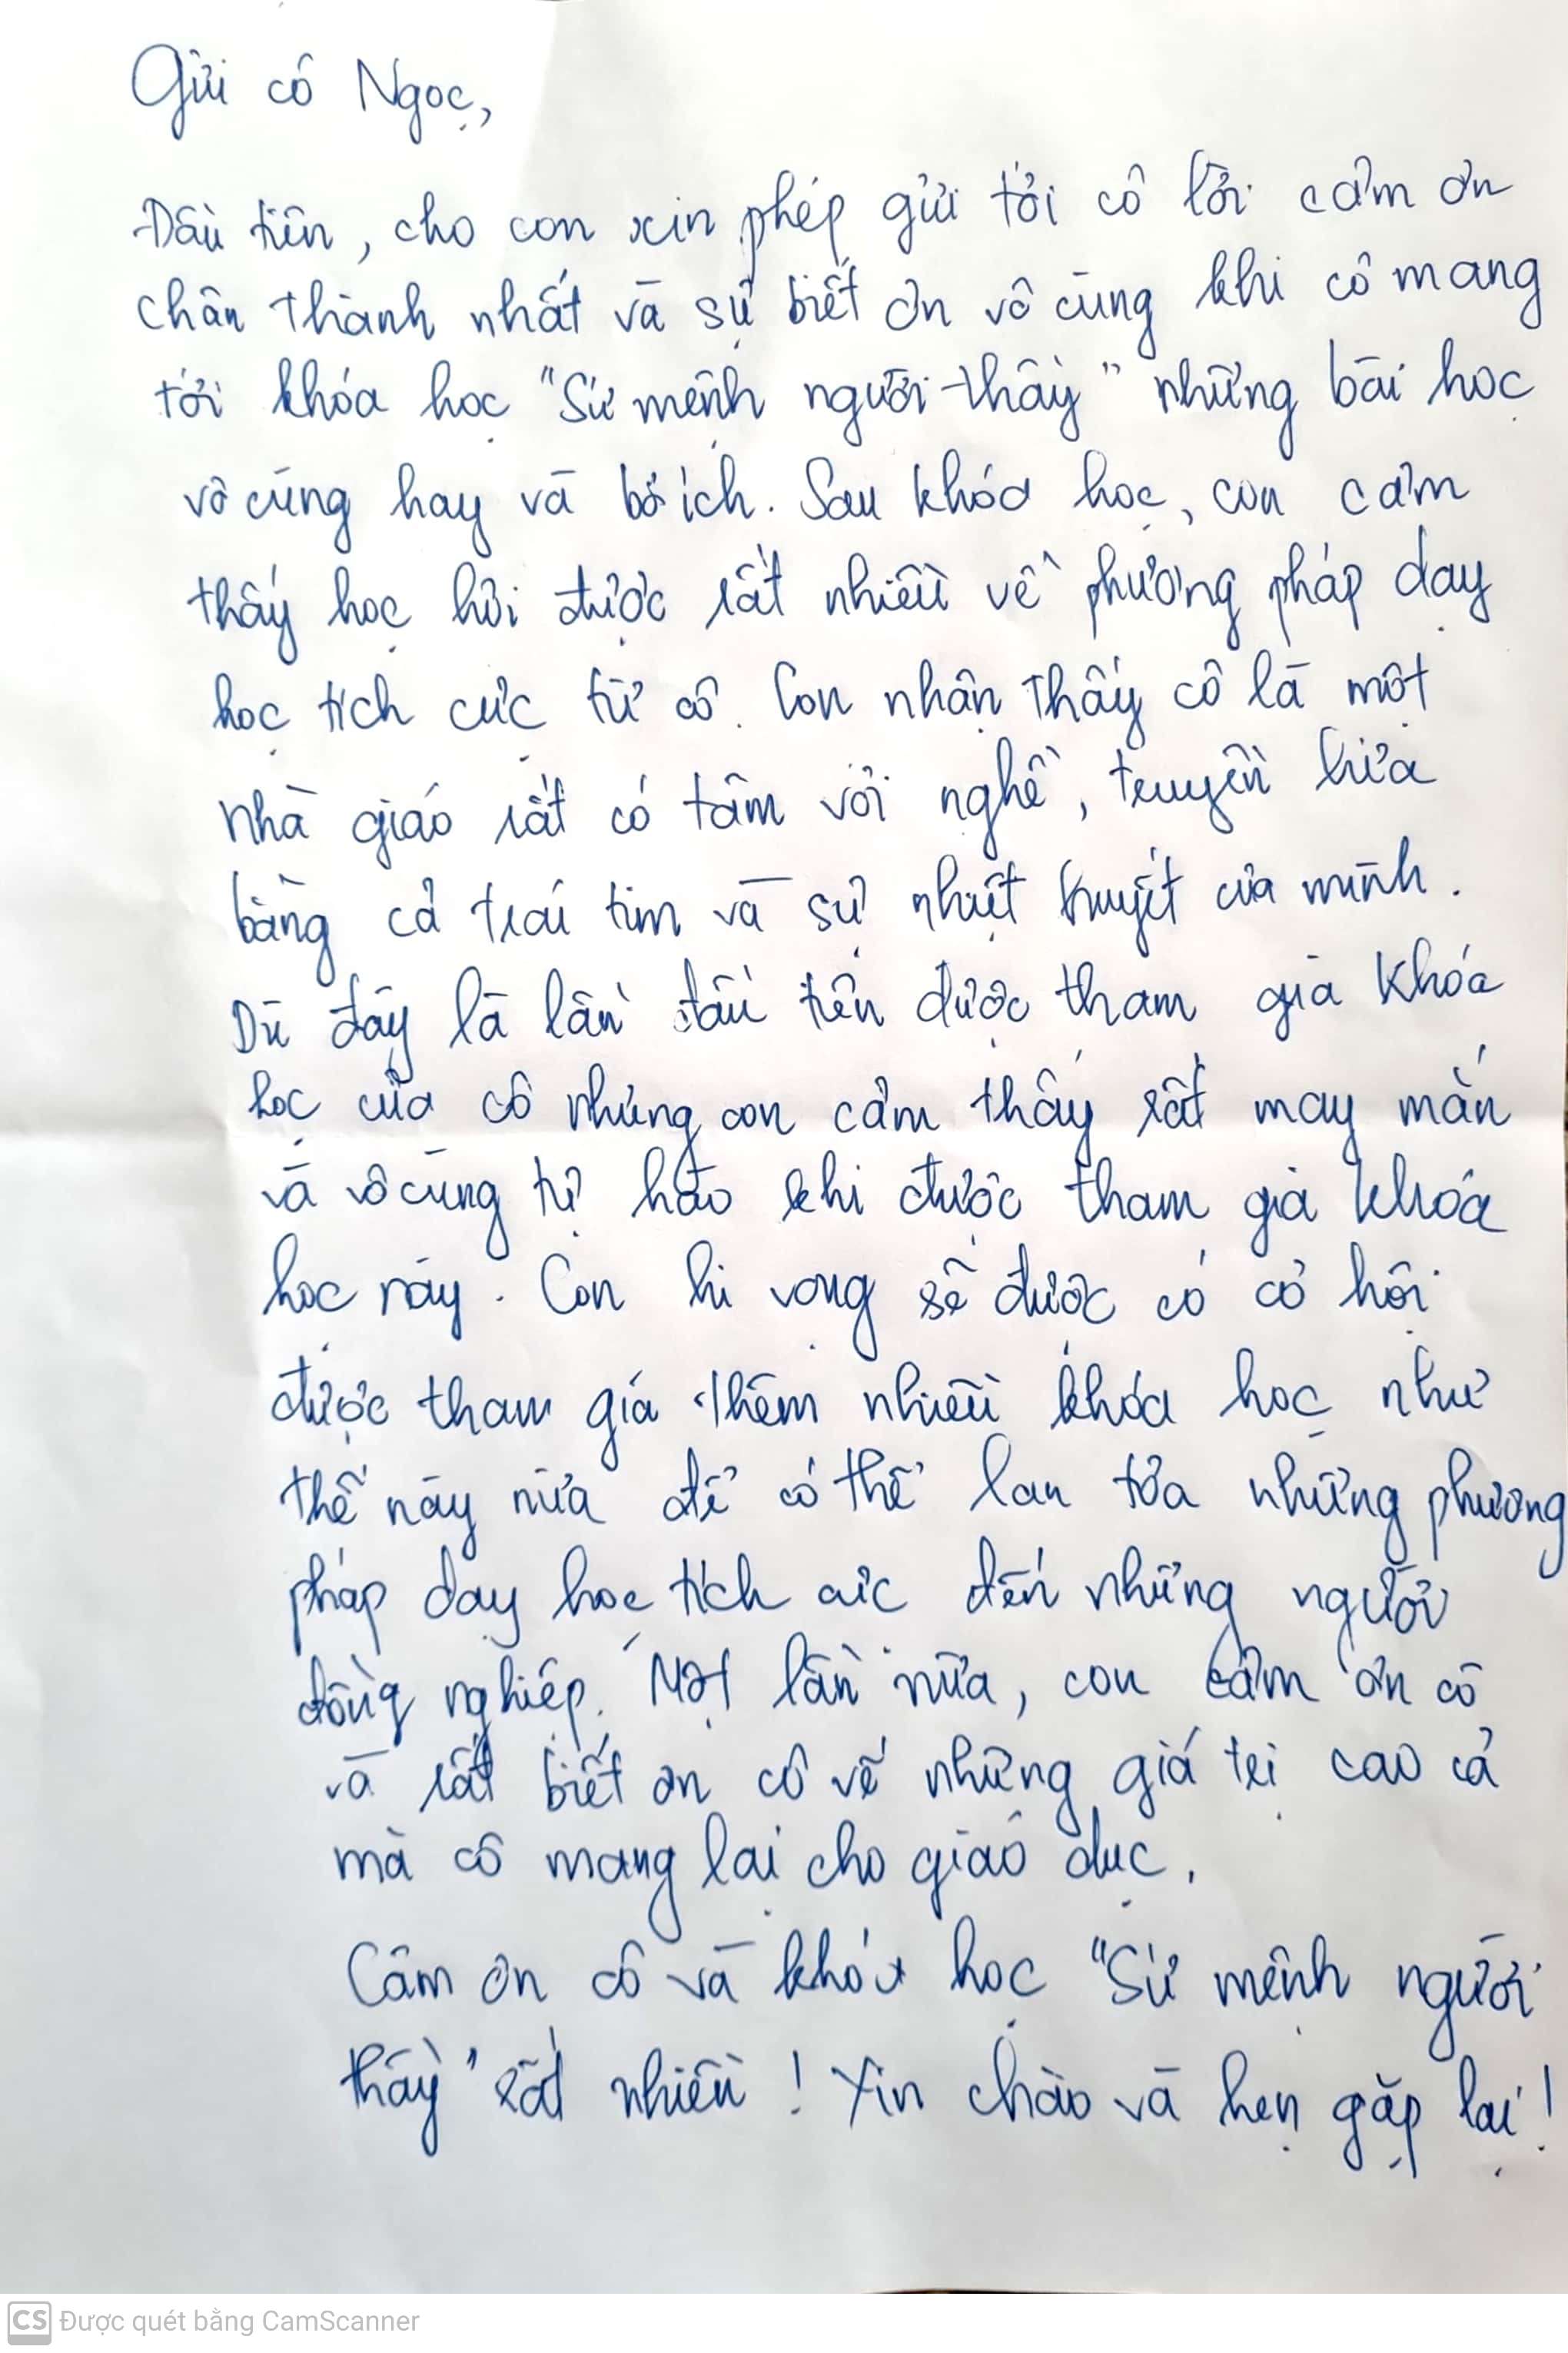 Gửi cô Ngọc,
Đầu tiên, cho con xin phép gửi tới cô lời cảm ơn
chân thành nhất và sự biết ơn vô cùng khi cô mang
tới khóa học "Sứ mệnh người thầy" những bài học
vô cùng hay và bổ ích. Sau khóa học, con cảm
thấy học hỏi được rất nhiều về phương pháp dạy
học tích cực từ cô. Con nhận thấy cô là một
nhà giáo rất có tâm với nghề, truyền lửa
bằng cả trái tim và sự nhiệt huyết của mình.
Dù đây là lần đầu tiên được tham gia khóa
học của cô nhưng con cảm thấy rất may mắn
và vô cùng tự hào khi được tham gia khóa
học này. Con hi vọng sẽ được có cơ hội
được tham gia thêm nhiều khóa học như
thế này nữa để có thể lan tỏa những phương
pháp dạy học tích cực đến những người
đồng nghiệp. Một lần nữa, con cảm ơn cô
và rất biết ơn cô về những giá trị cao cả
mà cô mang lại cho giáo dục.
Cảm ơn cô và khóa học "Sứ mệnh người
thầy" rất nhiều! Xin chào và hẹn gặp lại!
CS Được quét bằng CamScanner